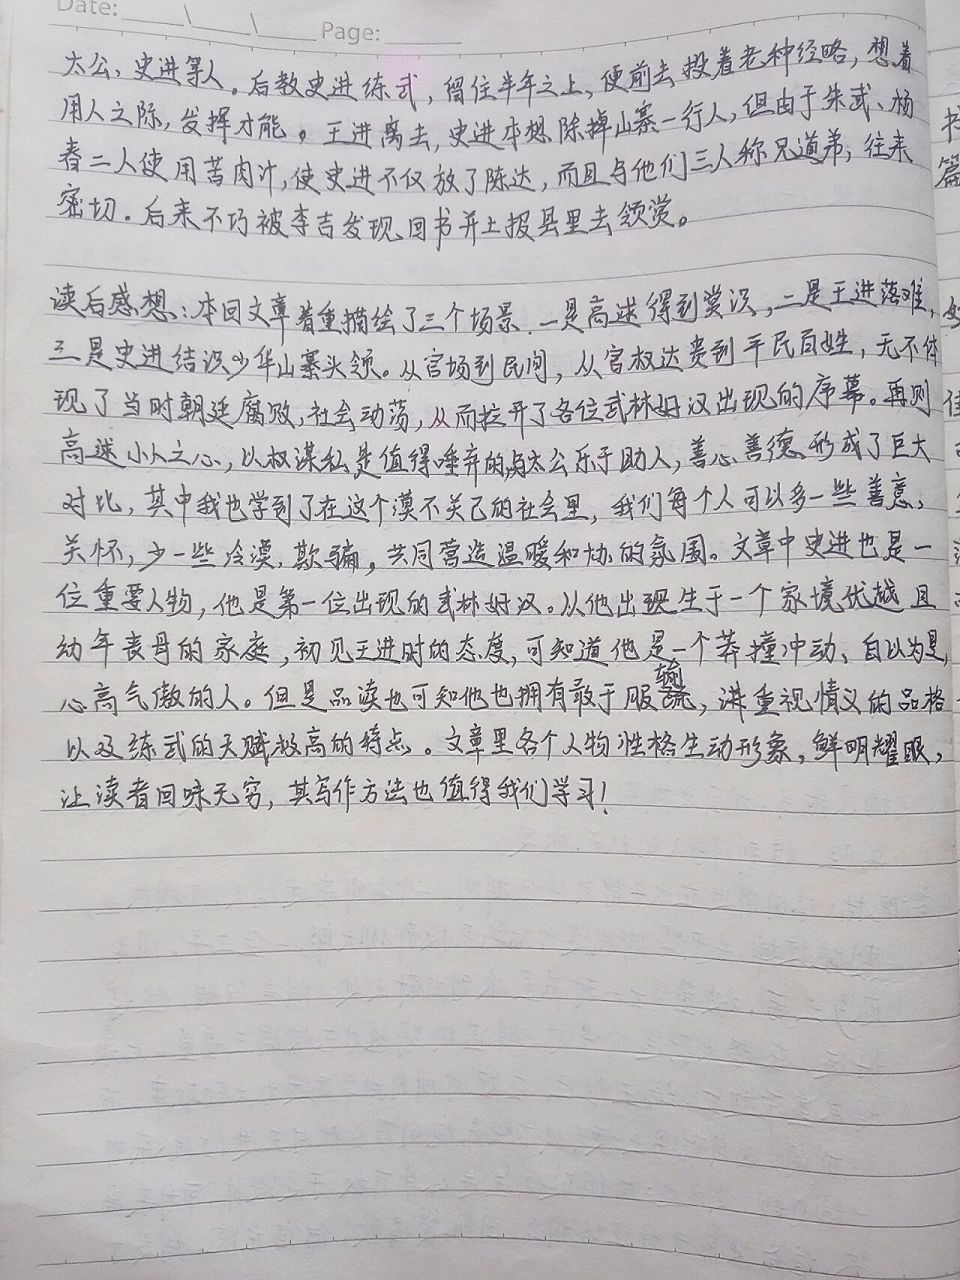 Date: ____\____\____ Page: ______
太公，史进等人。后教史进练武，留住半年之上，便前去投着老种经略，想着
用人之际，发挥才能。王进离去，史进本想除掉山寨一行人，但由于朱武、杨
春二人使用苦肉计，使史进不仅放了陈达，而且与他们三人称兄道弟，往来
密切。后来不巧被李吉发现回书并上报县里去领赏。
读后感想：本回文章着重描绘了三个场景，一是高逑得到赏识，二是王进落难，
三是史进结识少华山寨头领。从官场到民间，从官权达贵到平民百姓，无不体
现了当时朝廷腐败，社会动荡，从而拉开了各位武林好汉出现的序幕。再则
高逑小人之心，以权谋私是值得唾弃的，与太公乐于助人，善心善德形成了巨大
对比，其中我也学到了在这个漠不关己的社会里，我们每个人可以多一些善意，
关怀，少一些冷漠，欺骗，共同营造温暖和协的氛围。文章中史进也是一
位重要人物，他是第一位出现的武林好汉。从他出现生于一个家境优越且
幼年丧母的家庭，初见王进时的态度，可知道他是一个莽撞冲动、自以为是，
心高气傲的人。但是品读也可知他也拥有敢于服输，讲重视情义的品格
以及练武的天赋极高的特点。文章里各个人物性格生动形象，鲜明耀眼，
让读者回味无穷，其写作方法也值得我们学习！
篇